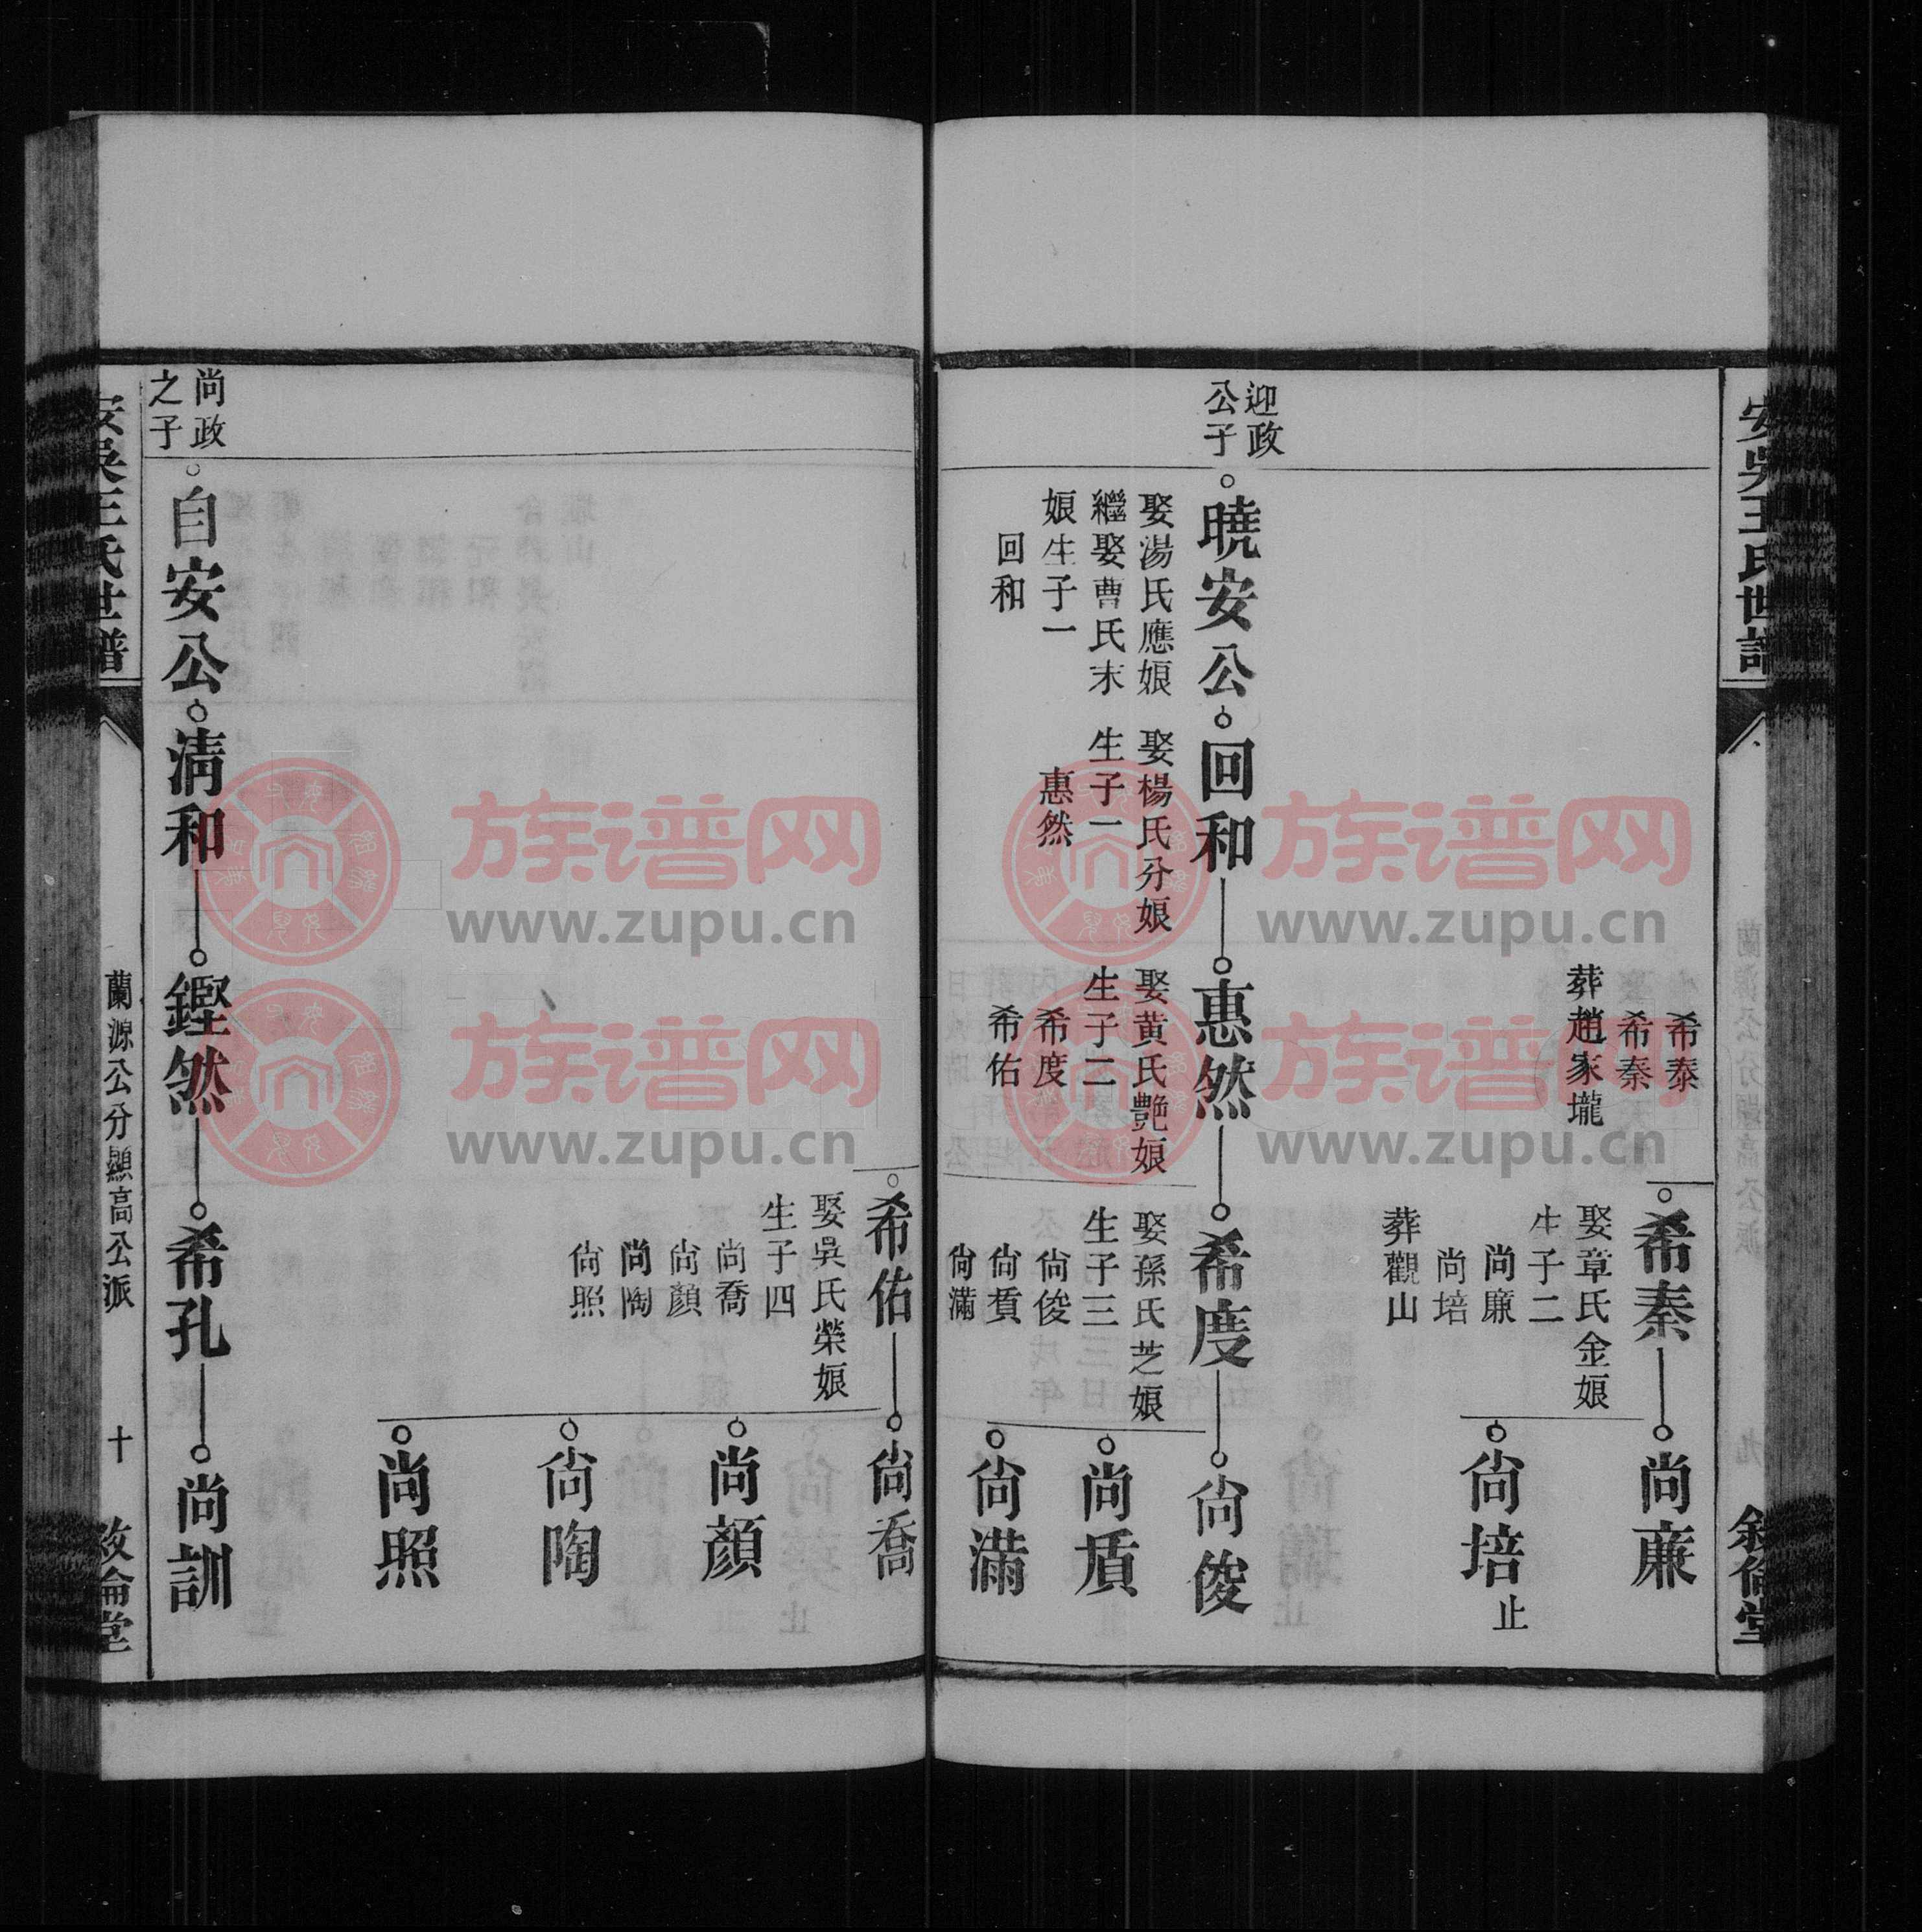 安吳王氏世譜
敘倫堂
希泰
希秦
葬趙家壠
希秦
娶章氏金娘
生子二
尚廉
尚培
葬觀山
尚廉
尚培
止
迎政
公子
曉安公
娶湯氏應娘
繼娶曹氏末
娘生子一
回和
回和
娶楊氏分娘
生子一
惠然
惠然
娶黄氏艶娘
生子二
希度
希佑
希度
娶孫氏芝娘
生子三
尚俊
尚貭
尚滿
尚俊
尚盾
尚滿
希佑
娶吳氏榮娘
生子四
尚喬
尚顏
尚陶
尚照
尚喬
尚顏
尚陶
尚照
尚政
之子
自安公
清和
鏗然
希孔
尚訓
安吳王氏世譜
蘭源公分顯高公派
十
敘倫堂
族谱网
www.zupu.cn
族谱网
www.zupu.cn
族谱网
www.zupu.cn
族谱网
www.zupu.cn